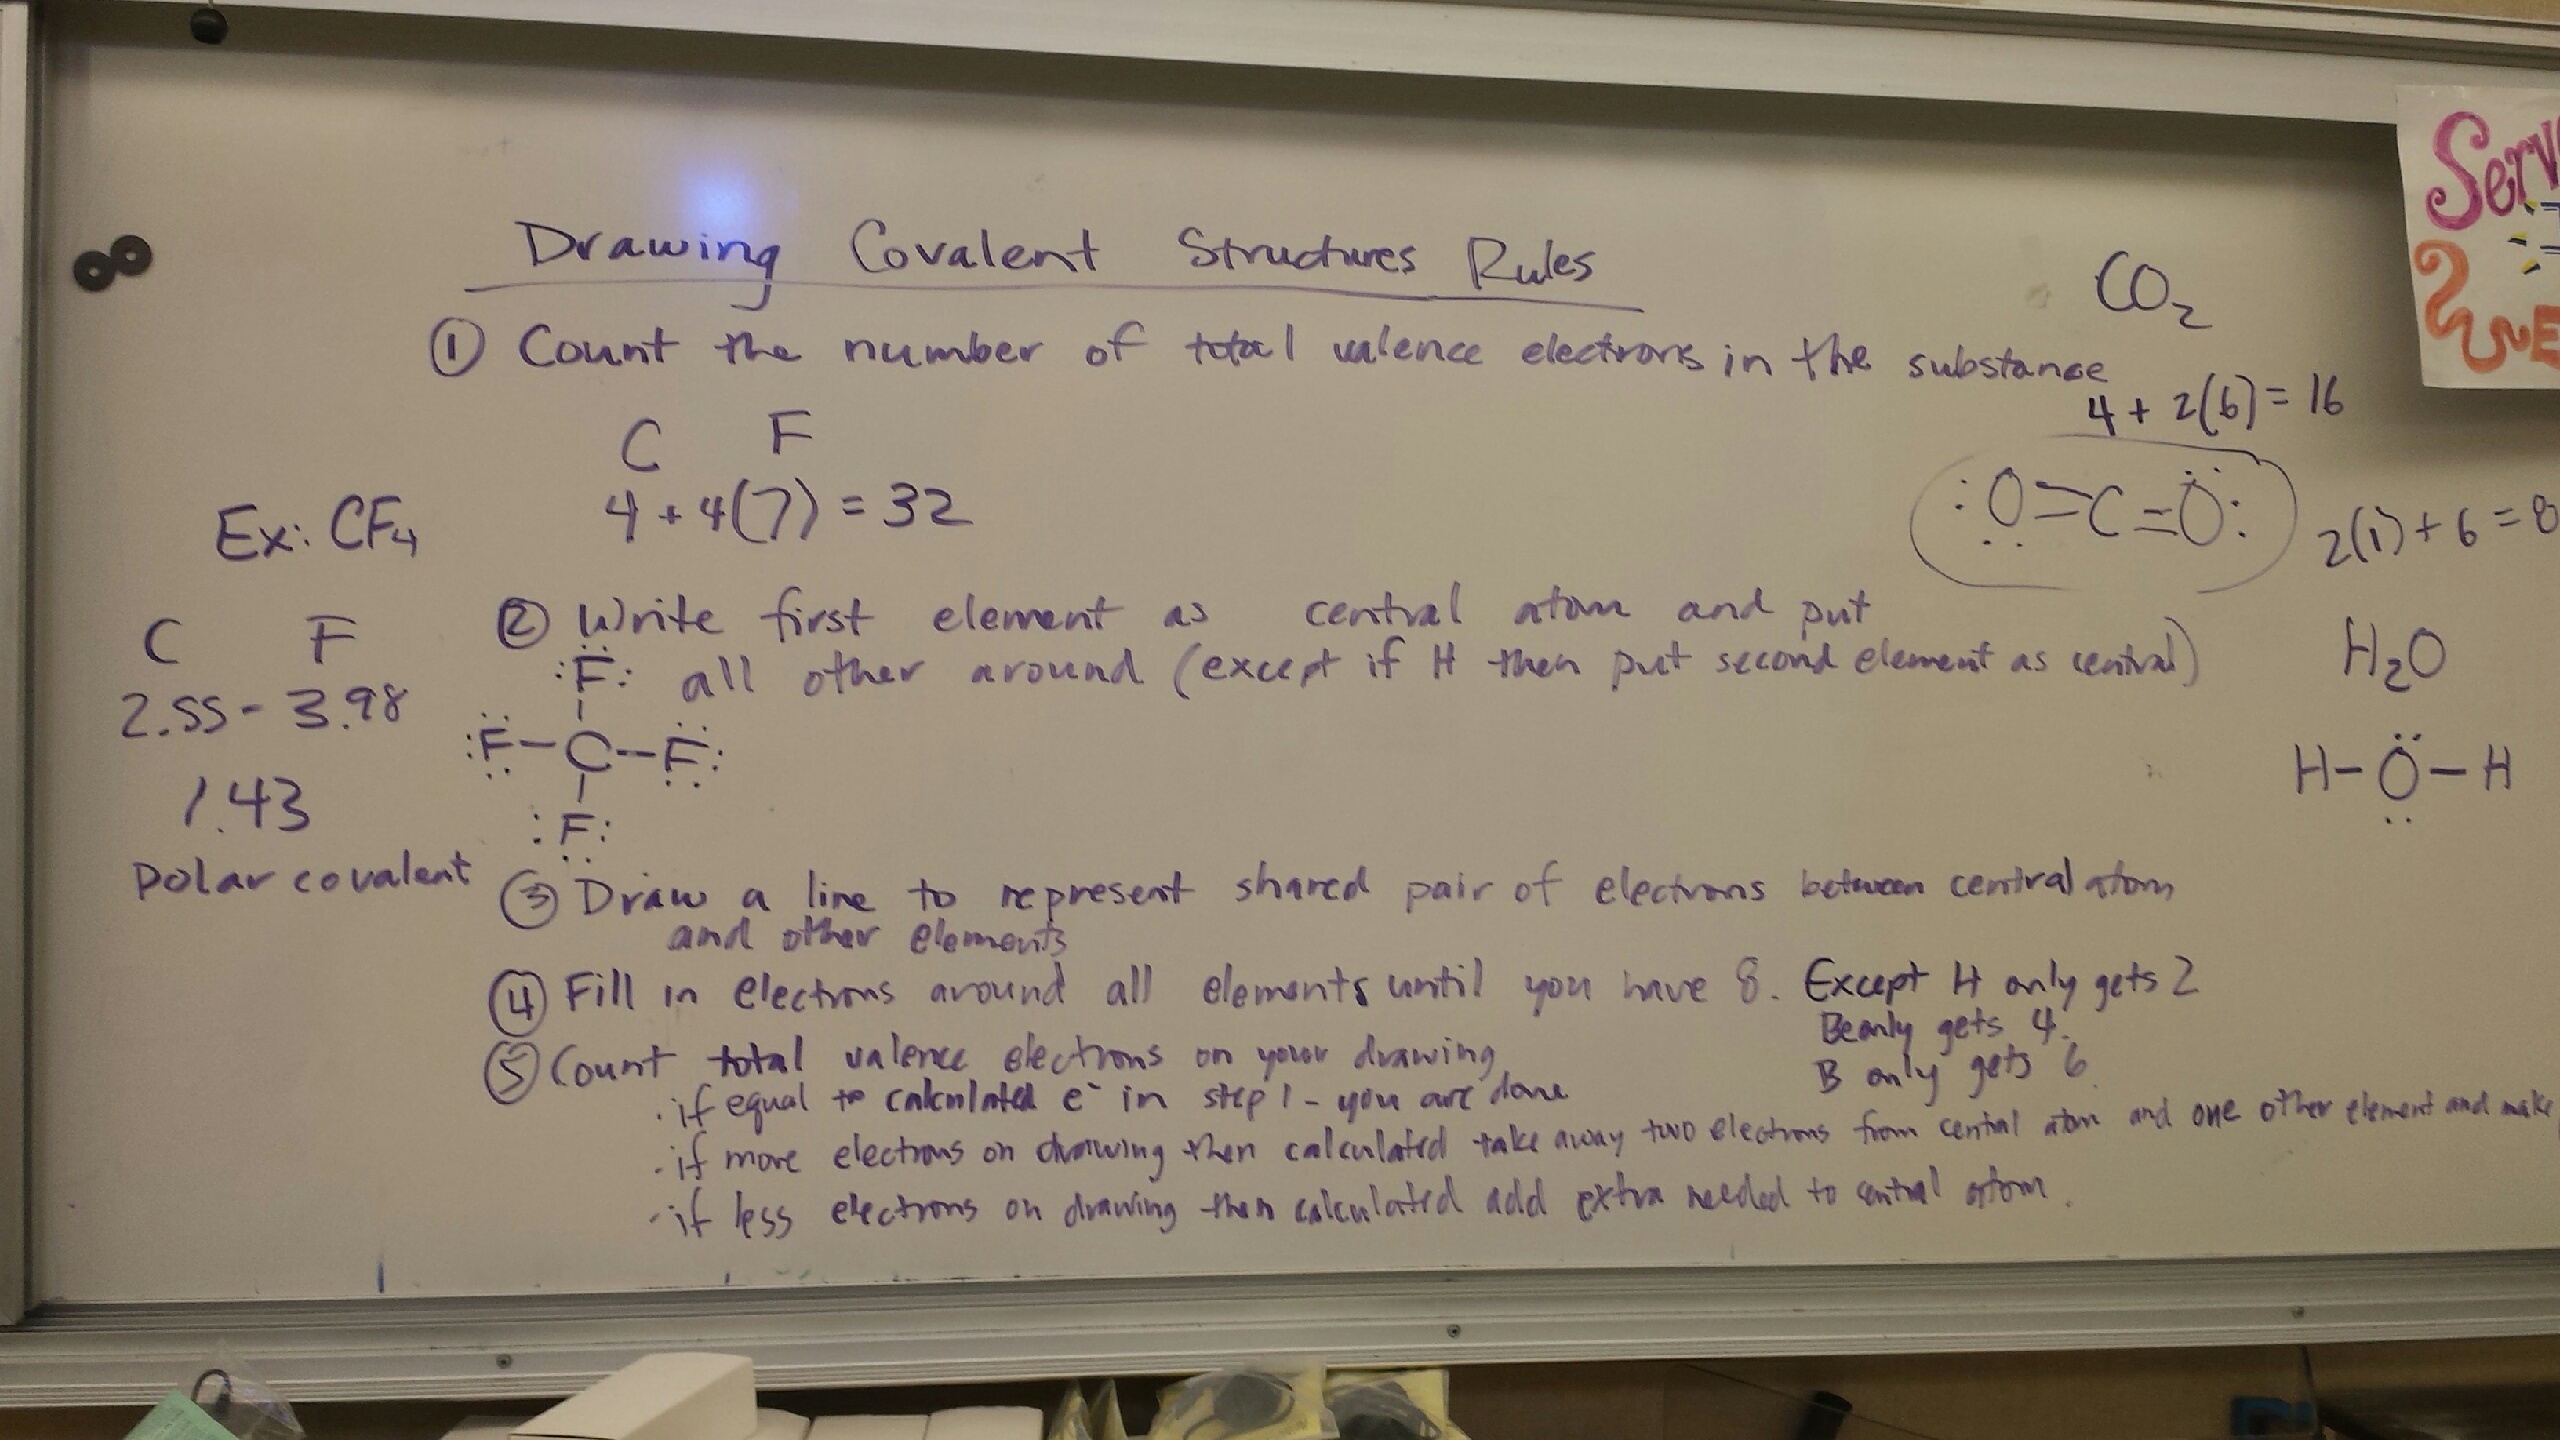 Drawing Covalent Structures Rules
① Count the number of total valence electrons in the substance
C F
4 + 4(7) = 32
Ex: CF₄
C F
2.55 - 3.98
1.43
Polar covalent
② Write first element as central atom and put
all other around (except if H then put second element as central)
:F:
:F - C - F:
:F:
③ Draw a line to represent shared pair of electrons between central atom
and other elements
④ Fill in electrons around all elements until you have 8. Except H only gets 2
Be only gets 4.
B only gets 6.
⑤ Count total valence electrons on your drawing
· if equal to calculated e⁻ in step 1 - you are done
· if more electrons on drawing then calculated take away two electrons from central atom and one other element and make
· if less electrons on drawing then calculated add extra needed to central atom.
CO₂
4 + 2(6) = 16
:O=C=O:
2(1) + 6 = 8
H₂O
H - O - H
Serv
WE